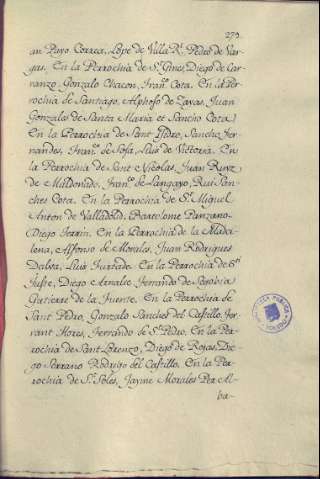 275.
an Payo Correa, Lope de Villa Rl. Pedro de Var-
gas. En la Perrochia de Sn. Gines, Diego de Car-
ranzo, Gonzalo Chacon, Iranco. Cota. En la Per-
rochia de Santiago, Alphoso de Zayas, Juan
Gonzales de Santa Maria et Sancho Cota
En la Perrochia de Sant Pidro, Sancho Fer-
nandes, Franco. de Sosa, Luis de Victoria. En
la Perrochia de Sant Nicolas, Juan Ruyz
de Maldonado, Franco. de Langayo, Rui San-
ches Cota. En la Perrochia de Sn. Miguel
Anton de Valladold, Bartolome Panzano
Diego Terrin. En la Perrochia de la Mada-
lena, Affonso de Morales, Juan Rodrigues
Dalva, Luis Furtade. En la Perrochia de Sti.
Juste, Diego Arnalte Ferrando de Segobia
Gutierre de la Fuente. En la Perrochia de
Sant Pedro, Gonzalo Sanches del Castillo, Fer-
rant Flores, Ferrando de Sn. Pedro. En la Per-
rochia de Sant Lorenzo, Diego de Rojas, Die-
go Serrano Rodrigo del Castillo. En la Per-
rochia de Sn. Soles, Jayme Morales Per Al-
ba-
BIBLIOTECA PUBLICA
TOLEDO